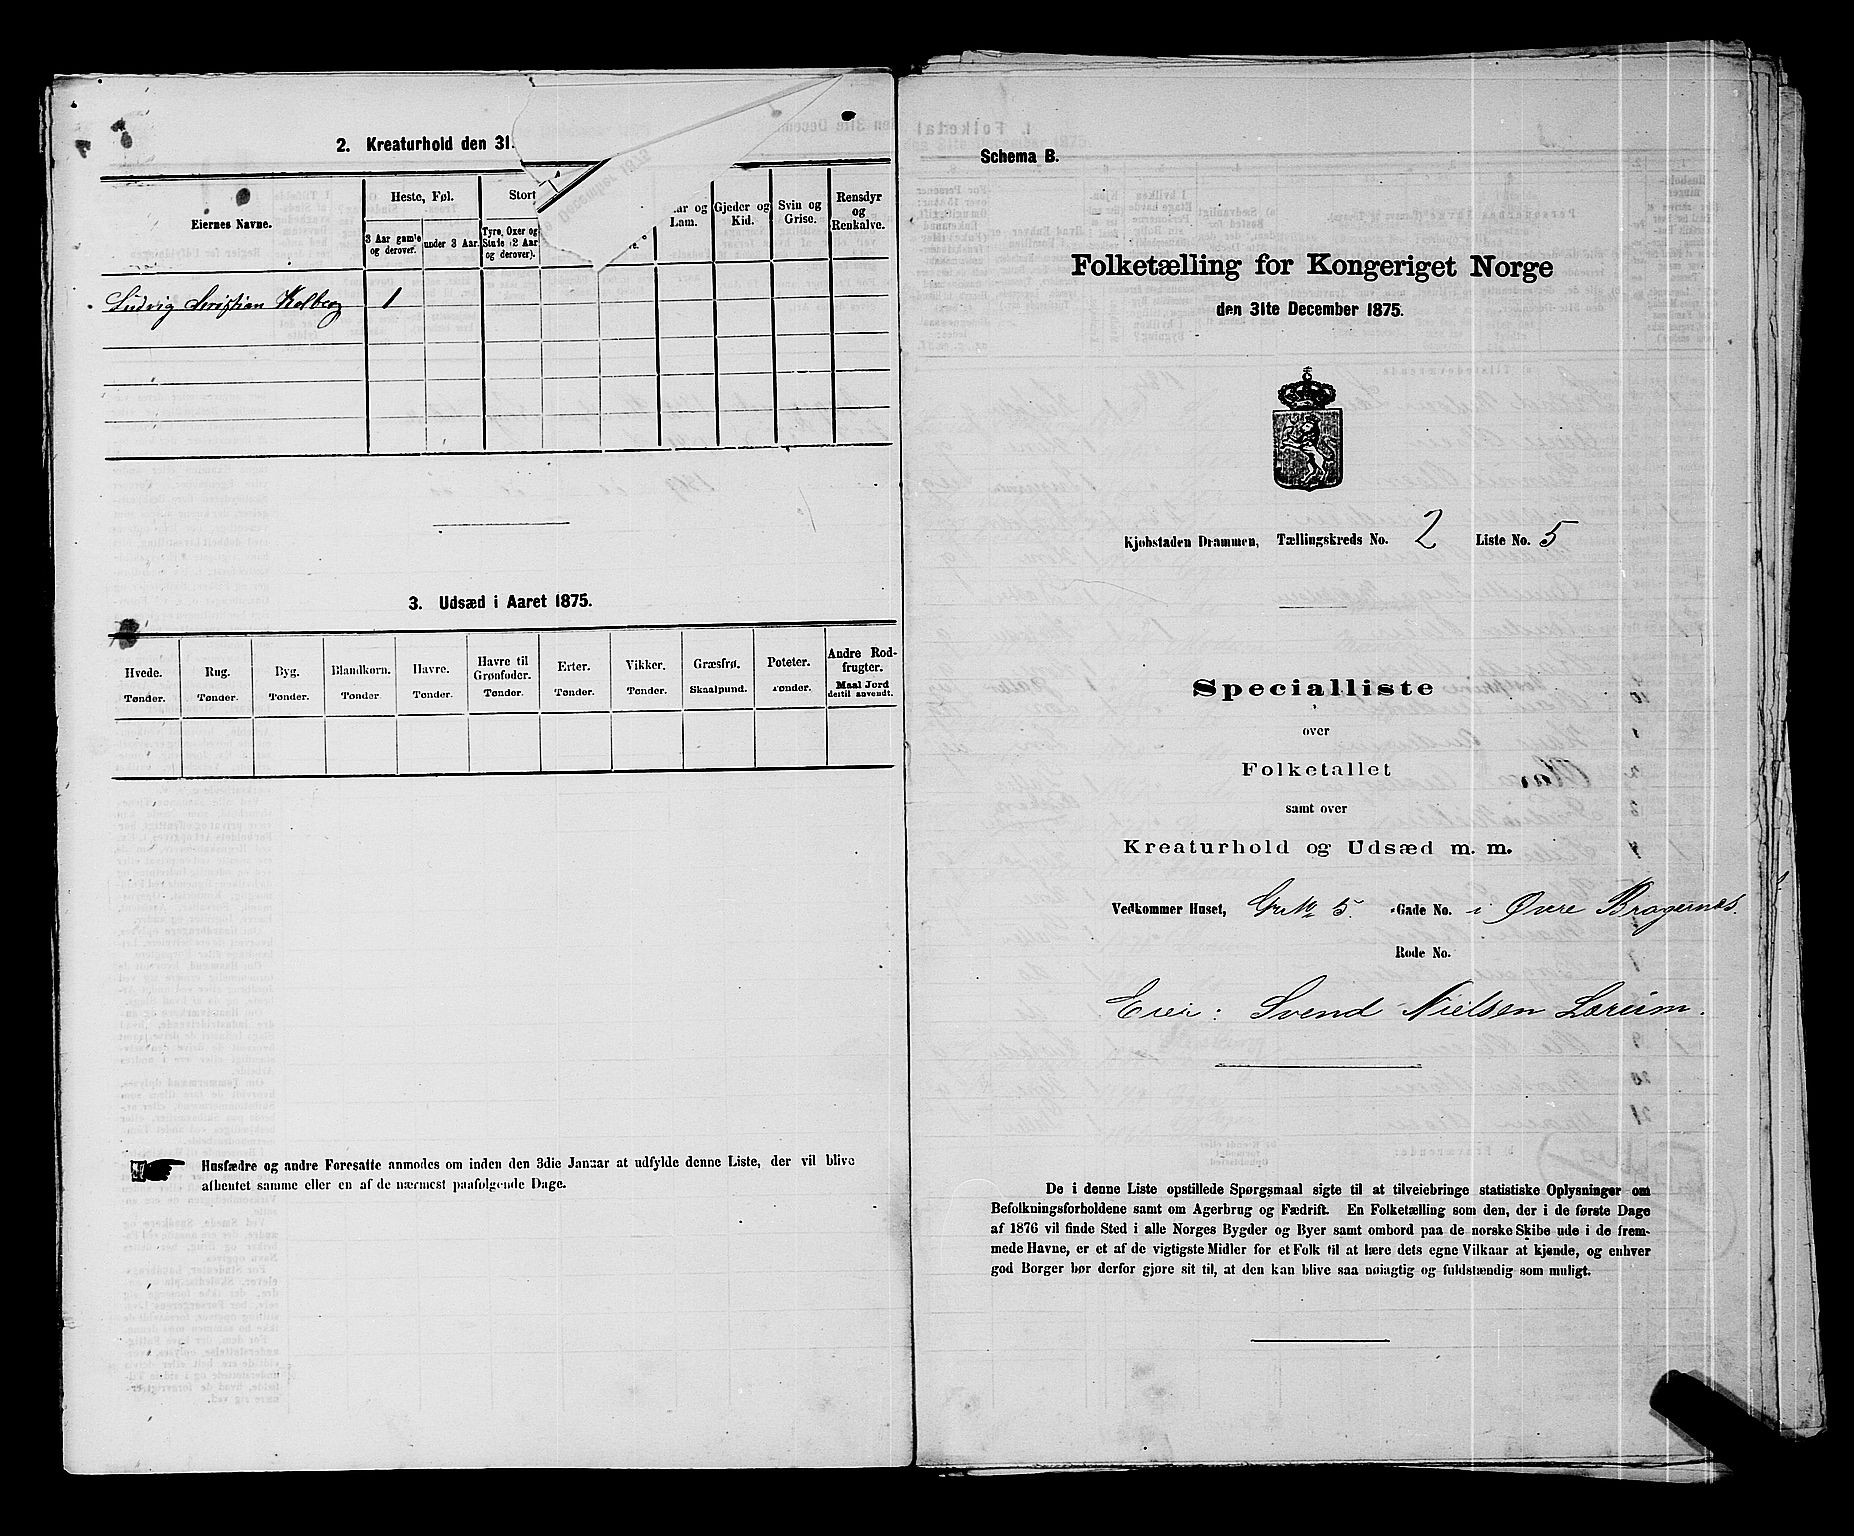 2. Kreaturhold den 31.
Eiernes Navne.
Heste, Føl.
3 Aar gamle og derover.
under 3 Aar.
Stort
Tyre, Oxer og Stude (2 Aar og derover).
December 1875
Lam.
Gjeder og Kid.
Svin og Grise.
Rensdyr og Renkalve.
Ludvig Kolberg 1
3. Udsæd i Aaret 1875.
Hvede. Rug. Byg. Blandkorn. Havre. Havre til Grønfoder. Erter. Vikker. Græsfrø. Poteter. Andre Rodfrugter.
Tønder. Tønder. Tønder. Tønder. Tønder. Tønder. Tønder. Tønder. Skaalpund. Tønder. Maal Jord dertil anvendt.
Husfædre og andre Foresatte anmodes om inden den 3die Januar at udfylde denne Liste, der vil blive
afhentet samme eller en af de nærmest paafølgende Dage.
Schema B.
Folketælling for Kongeriget Norge
den 31te December 1875.
Kjøbstaden Drammen, Tællingskreds No. 2 Liste No. 5
Specialliste
over
Folketallet
samt over
Kreaturhold og Udsæd m. m.
Vedkommer Huset, Gr. No 5. -Gade No. i Øvre Bragernæs.
Rode No.
Eier: Svend Nielsen Lærum.
De i denne Liste opstillede Spørgsmaal sigte til at tilveiebringe statistiske Oplysninger om
Befolkningsforholdene samt om Agerbrug og Fædrift. En Folketælling som den, der i de første Dage
af 1876 vil finde Sted i alle Norges Bygder og Byer samt ombord paa de norske Skibe ude i de frem-
mede Havne, er et af de vigtigste Midler for et Folk til at lære dets egne Vilkaar at kjende, og enhver
god Borger bør derfor gjøre sit til, at den kan blive saa nøiagtig og fuldstændig som muligt.